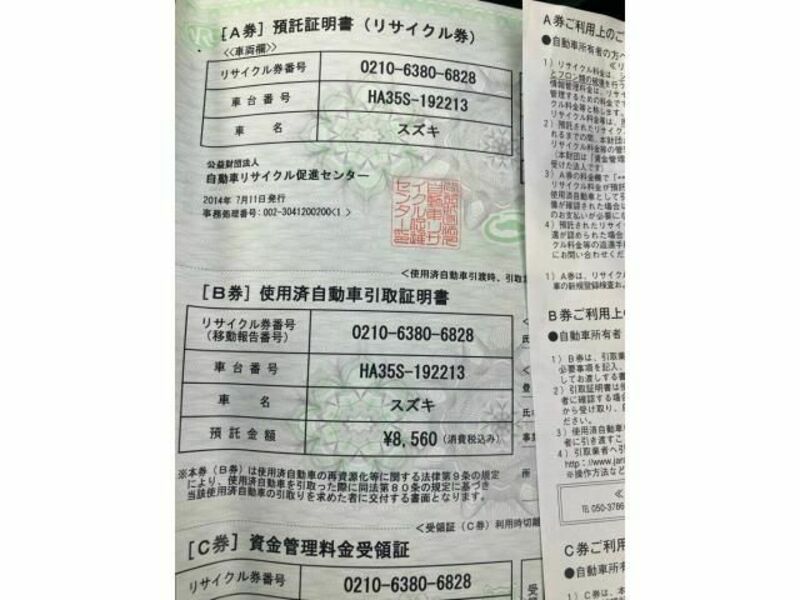 [A券] 預託証明書 (リサイクル券)
<<車両欄>>
リサイクル券番号 0210-6380-6828
車台番号 HA35S-192213
車名 スズキ
公益財団法人
自動車リサイクル促進センター
2014年 7月11日発行
事務処理番号:002-3041200200<1 >
<使用済自動車引渡時、引取
[B券] 使用済自動車引取証明書
リサイクル券番号
(移動報告番号) 0210-6380-6828
車台番号 HA35S-192213
車名 スズキ
預託金額 ¥8,560 (消費税込み)
※本券(B券)は使用済自動車の再資源化等に関する法律第9条の規定
により、使用済自動車を引取った際に同法第80条の規定に基づき
当該使用済自動車の引取りを求めた者に交付する書面となります。
<受領証(C券)利用時切離
[C券] 資金管理料金受領証
リサイクル券番号 0210-6380-6828
A券ご利用上のご
●自動車所有者の方へ
1) リサイクル料金は、
とフロン類の破壊を行う
情報管理料金は、リサイ
管理するための料金です
クル料金等と称します。
リサイクル料金等は、
2) 預託されたリサイク
れるまでの間、本財団
クル料金等の管理
(本財団は「資金管理
た法人です)
3) A券の料金欄で「**
リサイクル料金が預託
使用済自動車として引
備が確認された場合は
のお支払いが必要にな
4) 預託されたリサイク
選が認められた場合
クル料金等の返還手
にお問い合わせくだ
1) A券は、リサイクル
車の新規登録検査お
B券ご利用上の
●自動車所有者
1) B券は、引取業
必要事項を記入、
してお渡しする書
2) 引取証明書は使
者に確認する場合
から受け取り、
ださい。
3) 使用済自動車
者に引き渡すこ
4) 引取業者へ引
http://www.jar
※操作方法など
℡ 050-3786
C券ご利用
●自動車所有
1) C券は、本